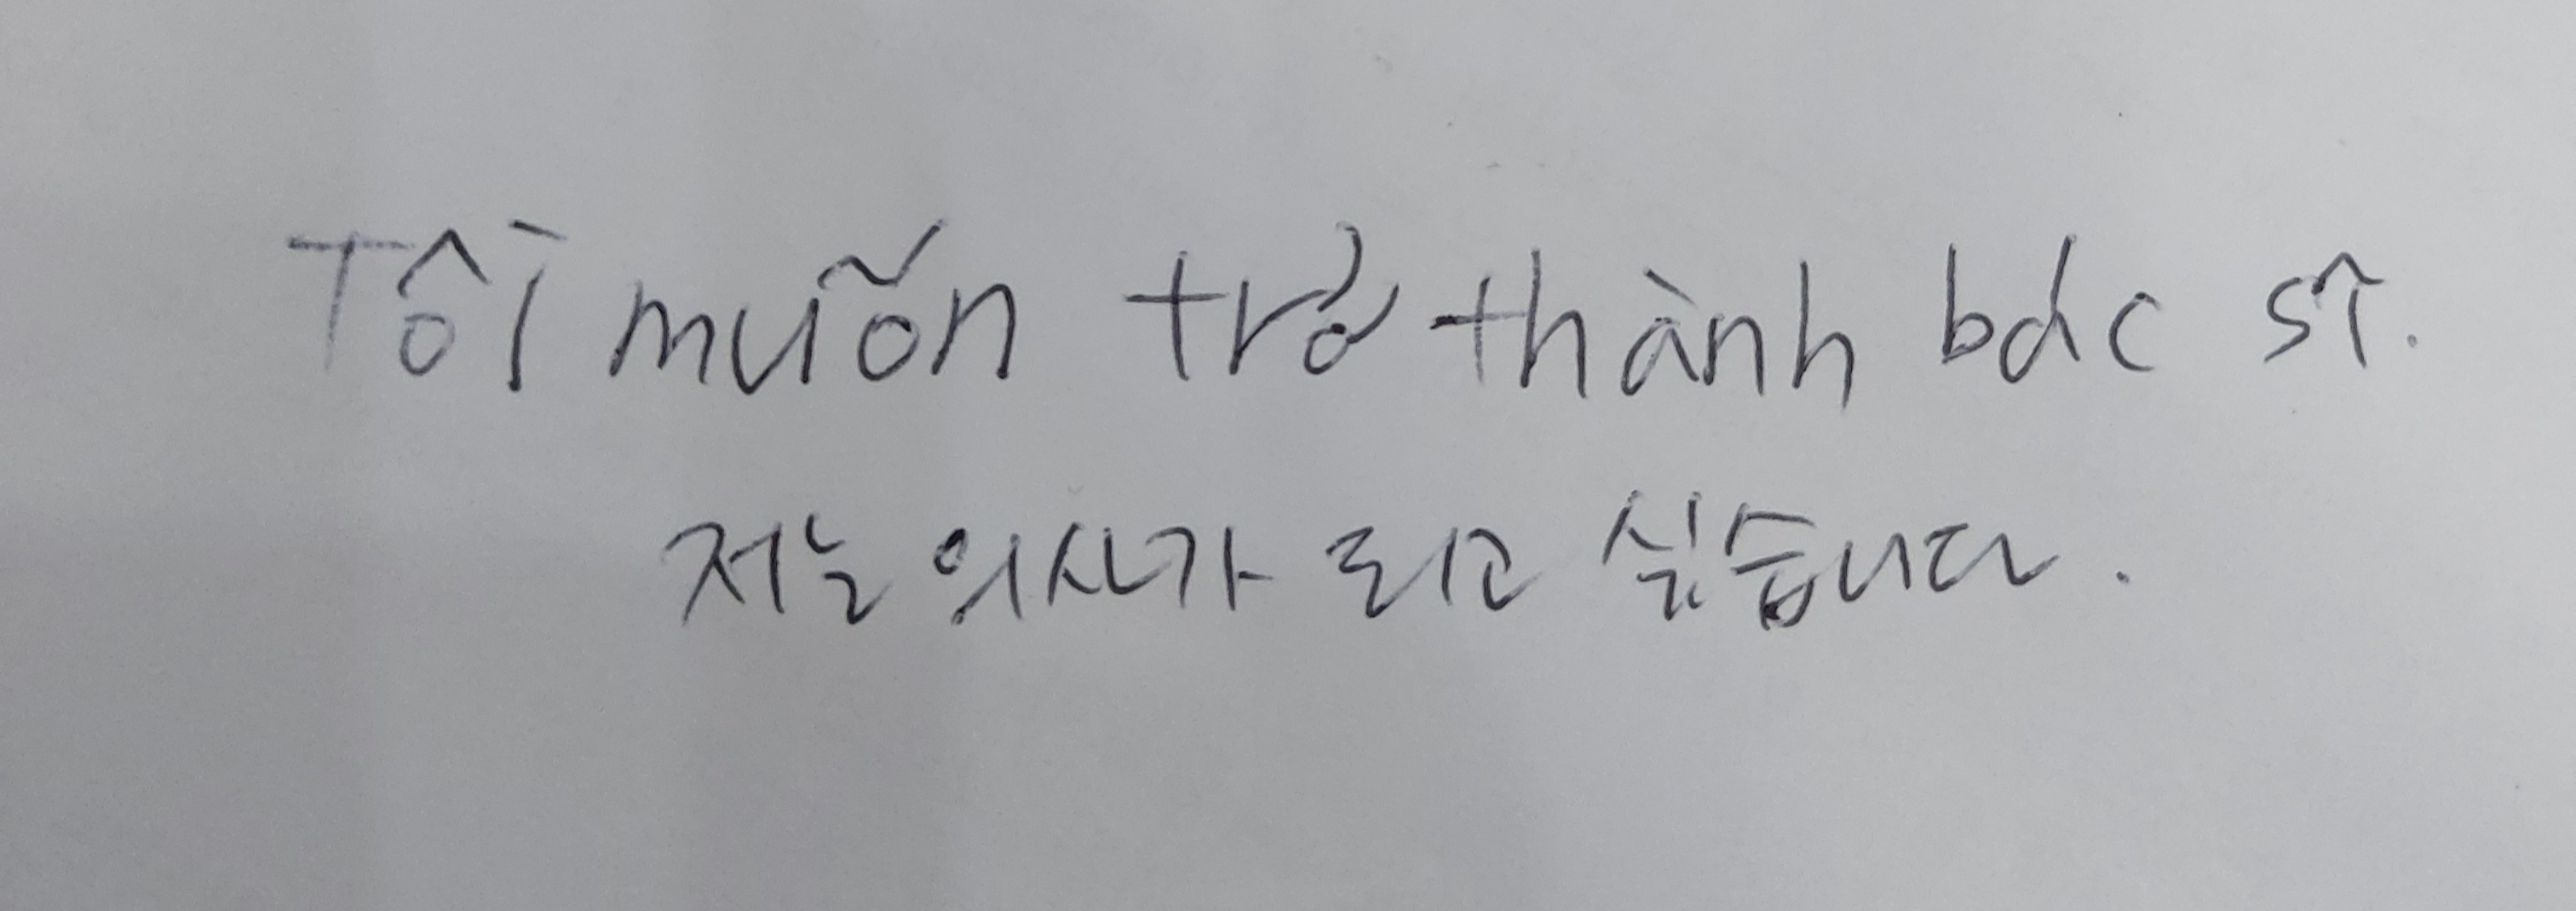 Tôi muốn trở thành bác sĩ.
저는 의사가 되고 싶습니다.